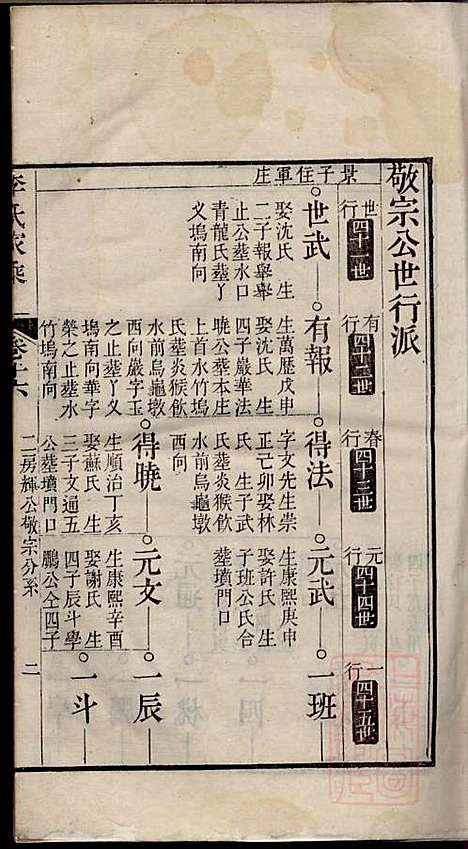 敬宗公世行派
景子在軍庄
世行 四十一世
有行 四十二世
春行 四十三世
元行 四十四世
一行 四十五世
世武
娶沈氏生
二子報舉舉
止公塟水口
青龍氏塟丫
义塢南向
有報
生萬歷戊申
娶沈氏生
四子巖華法
曉公塟本庄
上首水竹塢
氏塟炎猴飲
水前烏龜墩
西向巖字玉
之止塟丫义
塢南向華字
榮之止塟水
竹塢南向
得法
字文先生崇
正己卯娶林
氏生子武
氏塟炎猴飲
水前烏龜墩
西向
元武
生康熙庚申
娶許氏生
子班公氏合
塟墳門口
一班
得曉
生順治丁亥
娶蘇氏生
三子文通五
公塟墳門口
元文
生康熙辛酉
娶謝氏生
四子辰斗學
鵬公仝四子
一辰
一斗
李氏家乘
卷十六
二房輝公敬宗分系
二